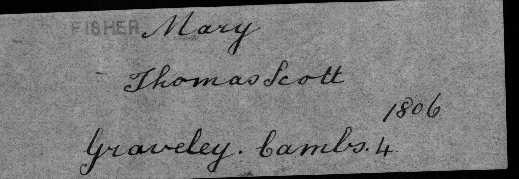 FISHER Mary
- Thomas Scott
1806
Graveley. Cambs. 4